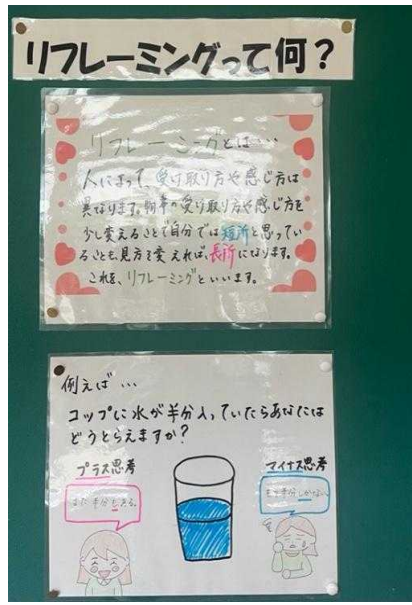 リフレーミングって何？
リフレーミングとは…
人によって、受け取り方や感じ方は
異なります。物事の受け取り方や感じ方を
少し変えることで自分では短所と思ってい
ることも、見方を変えれば、長所になります。
これを、リフレーミングといいます。
例えば…
コップに水が半分入っていたらあなたは
どうとらえますか？
プラス思考
マイナス思考
まだ半分もある。
もう半分しかない。